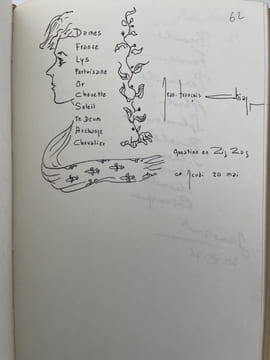 62
Dames
France
Lys
Pertuisane
Or
Chouette
Soleil
Te Deum
Archange
Chevalier
Jean-François
Question en Zig Zag
ce Jeudi 20 mai